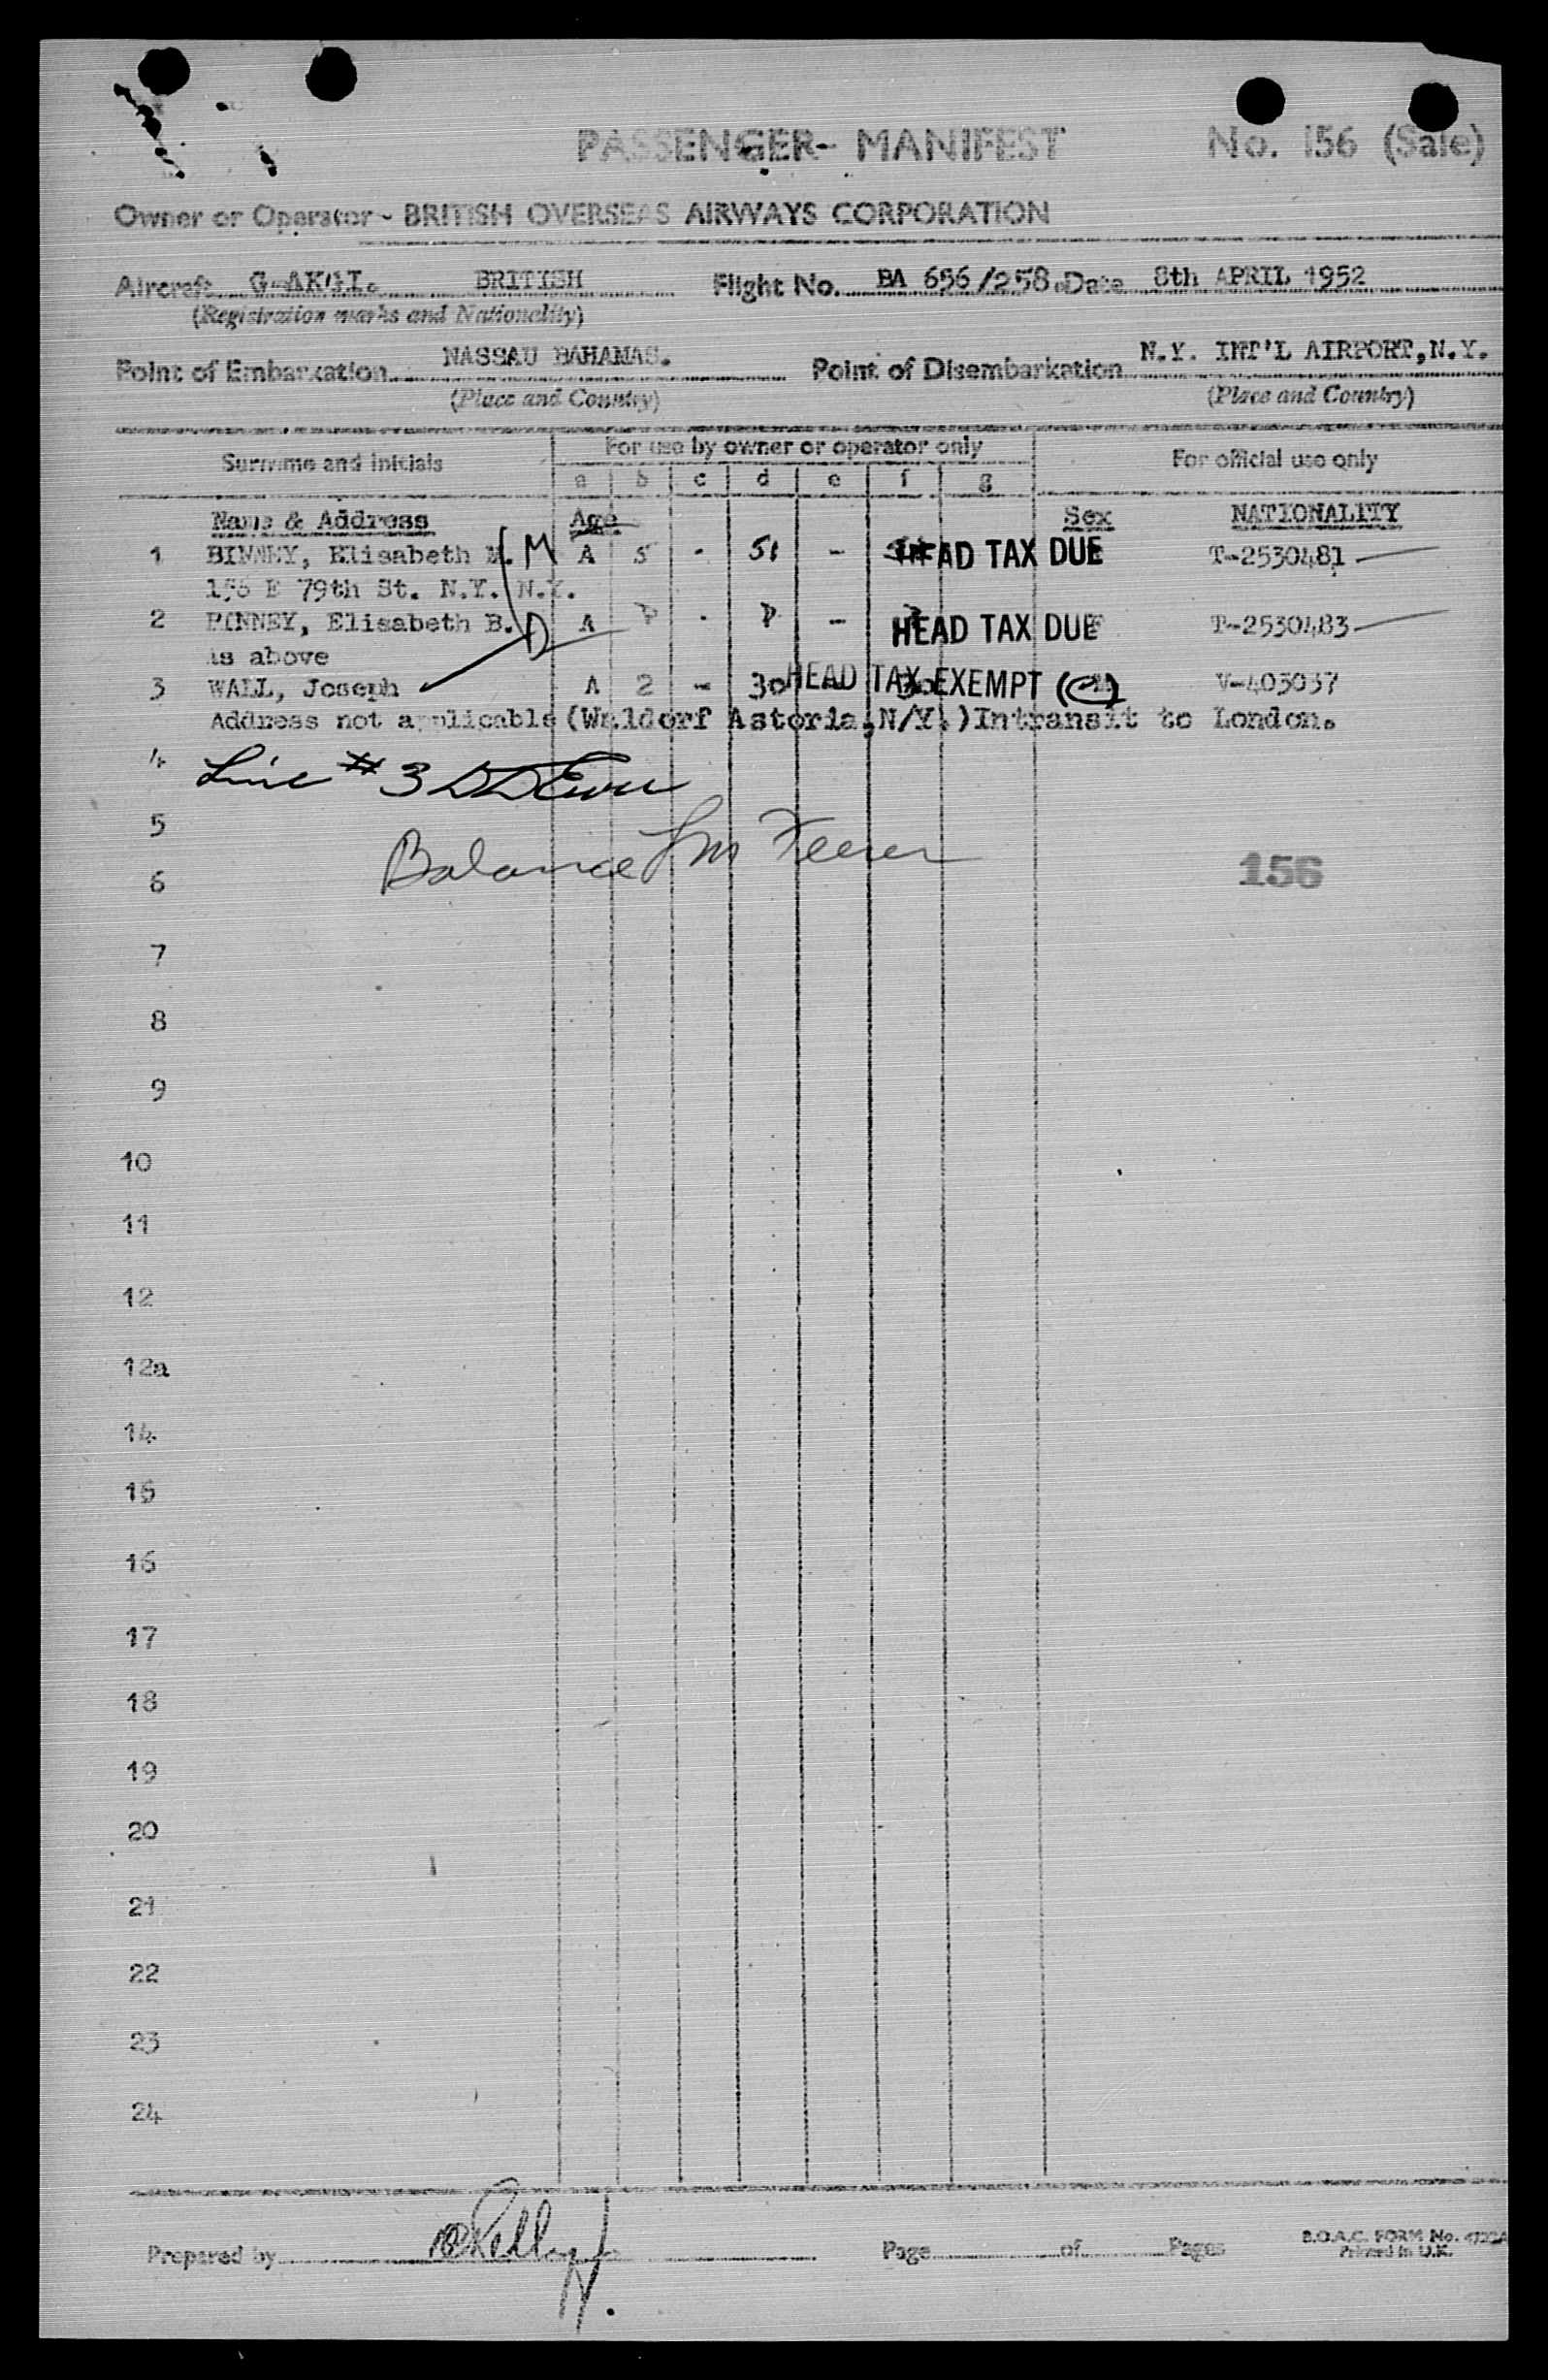 PASSENGER- MANIFEST No. 156 (Sale)
Owner or Operator - BRITISH OVERSEAS AIRWAYS CORPORATION
Aircraft BRITISH Flight No. BA 696/258. Date 8th APRIL 1952
(Registration marks and Nationality)
Point of Embarkation NASSAU BAHAMAS. Point of Disembarkation N.Y. INT'L AIRPORT, N.Y.
(Place and Country) (Place and Country)
Surname and initials For use by owner or operator only For official use only
a b c d e f g
Name & Address Age Sex NATIONALITY
1 BINNEY, Elisabeth M. M A 5 - 51 - HEAD TAX DUE T-2530481
156 E 79th St. N.Y. N.Y.
2 BINNEY, Elisabeth B. D A P - P - HEAD TAX DUE T-2530483
As above
3 WALL, Joseph A 2 - 30 - 30 HEAD TAX EXEMPT V-403037
Address not applicable (Waldorf Astoria, N/Y.) Intransit to London.
4 Line #3
5 Balance
6 156
7
8
9
10
11
12
12a
14
15
16
17
18
19
20
21
22
23
24
Prepared by Page of Pages B.O.A.C. FORM No.
Printed in U.K.